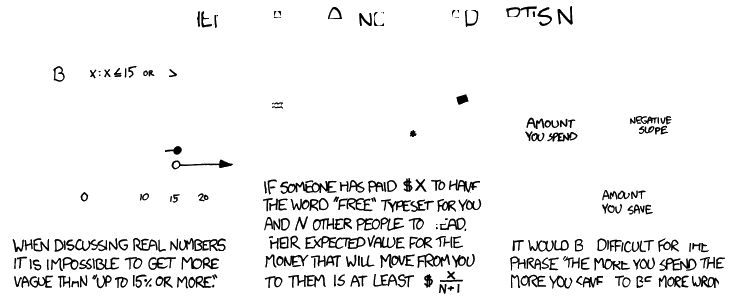 B x:x≤15 OR >
0 10 15 20
WHEN DISCUSSING REAL NUMBERS
IT IS IMPOSSIBLE TO GET MORE
VAGUE THAN "UP TO 15% OR MORE."
IF SOMEONE HAS PAID $X TO HAVE
THE WORD "FREE" TYPESET FOR YOU
AND N OTHER PEOPLE TO
EXPECTED VALUE FOR THE
MONEY THAT WILL MOVE FROM YOU
TO THEM IS AT LEAST $ X/N+1
AMOUNT
YOU SPEND
NEGATIVE
SLOPE
AMOUNT
YOU SAVE
IT WOULD B DIFFICULT FOR
PHRASE "THE MORE YOU SPEND THE
MORE YOU SAVE TO BE MORE